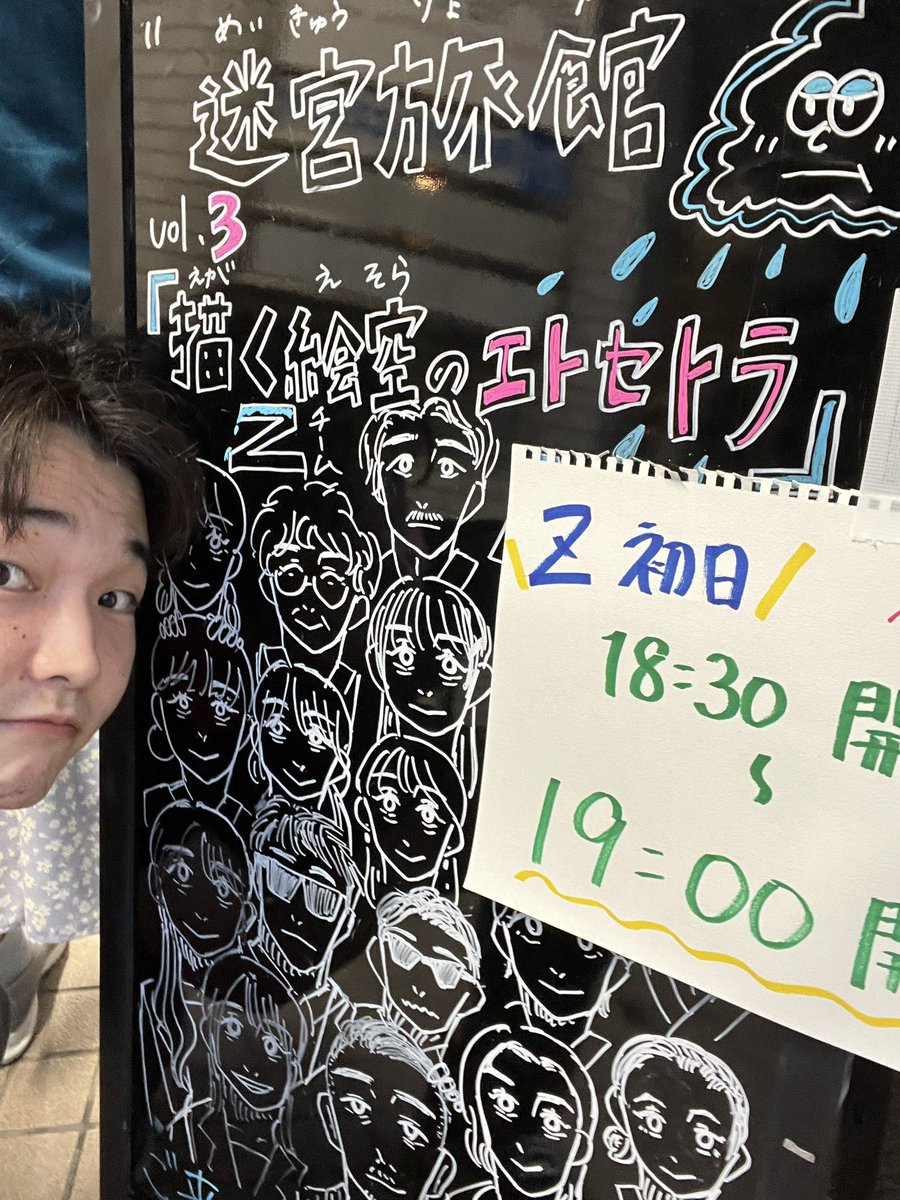 めいきゅうりょ
迷宮旅館
vol.3
えが えそら
「描く絵空のエトセトラ」
Zチーム
\Z 初日/
18:30 開
~
19:00 開